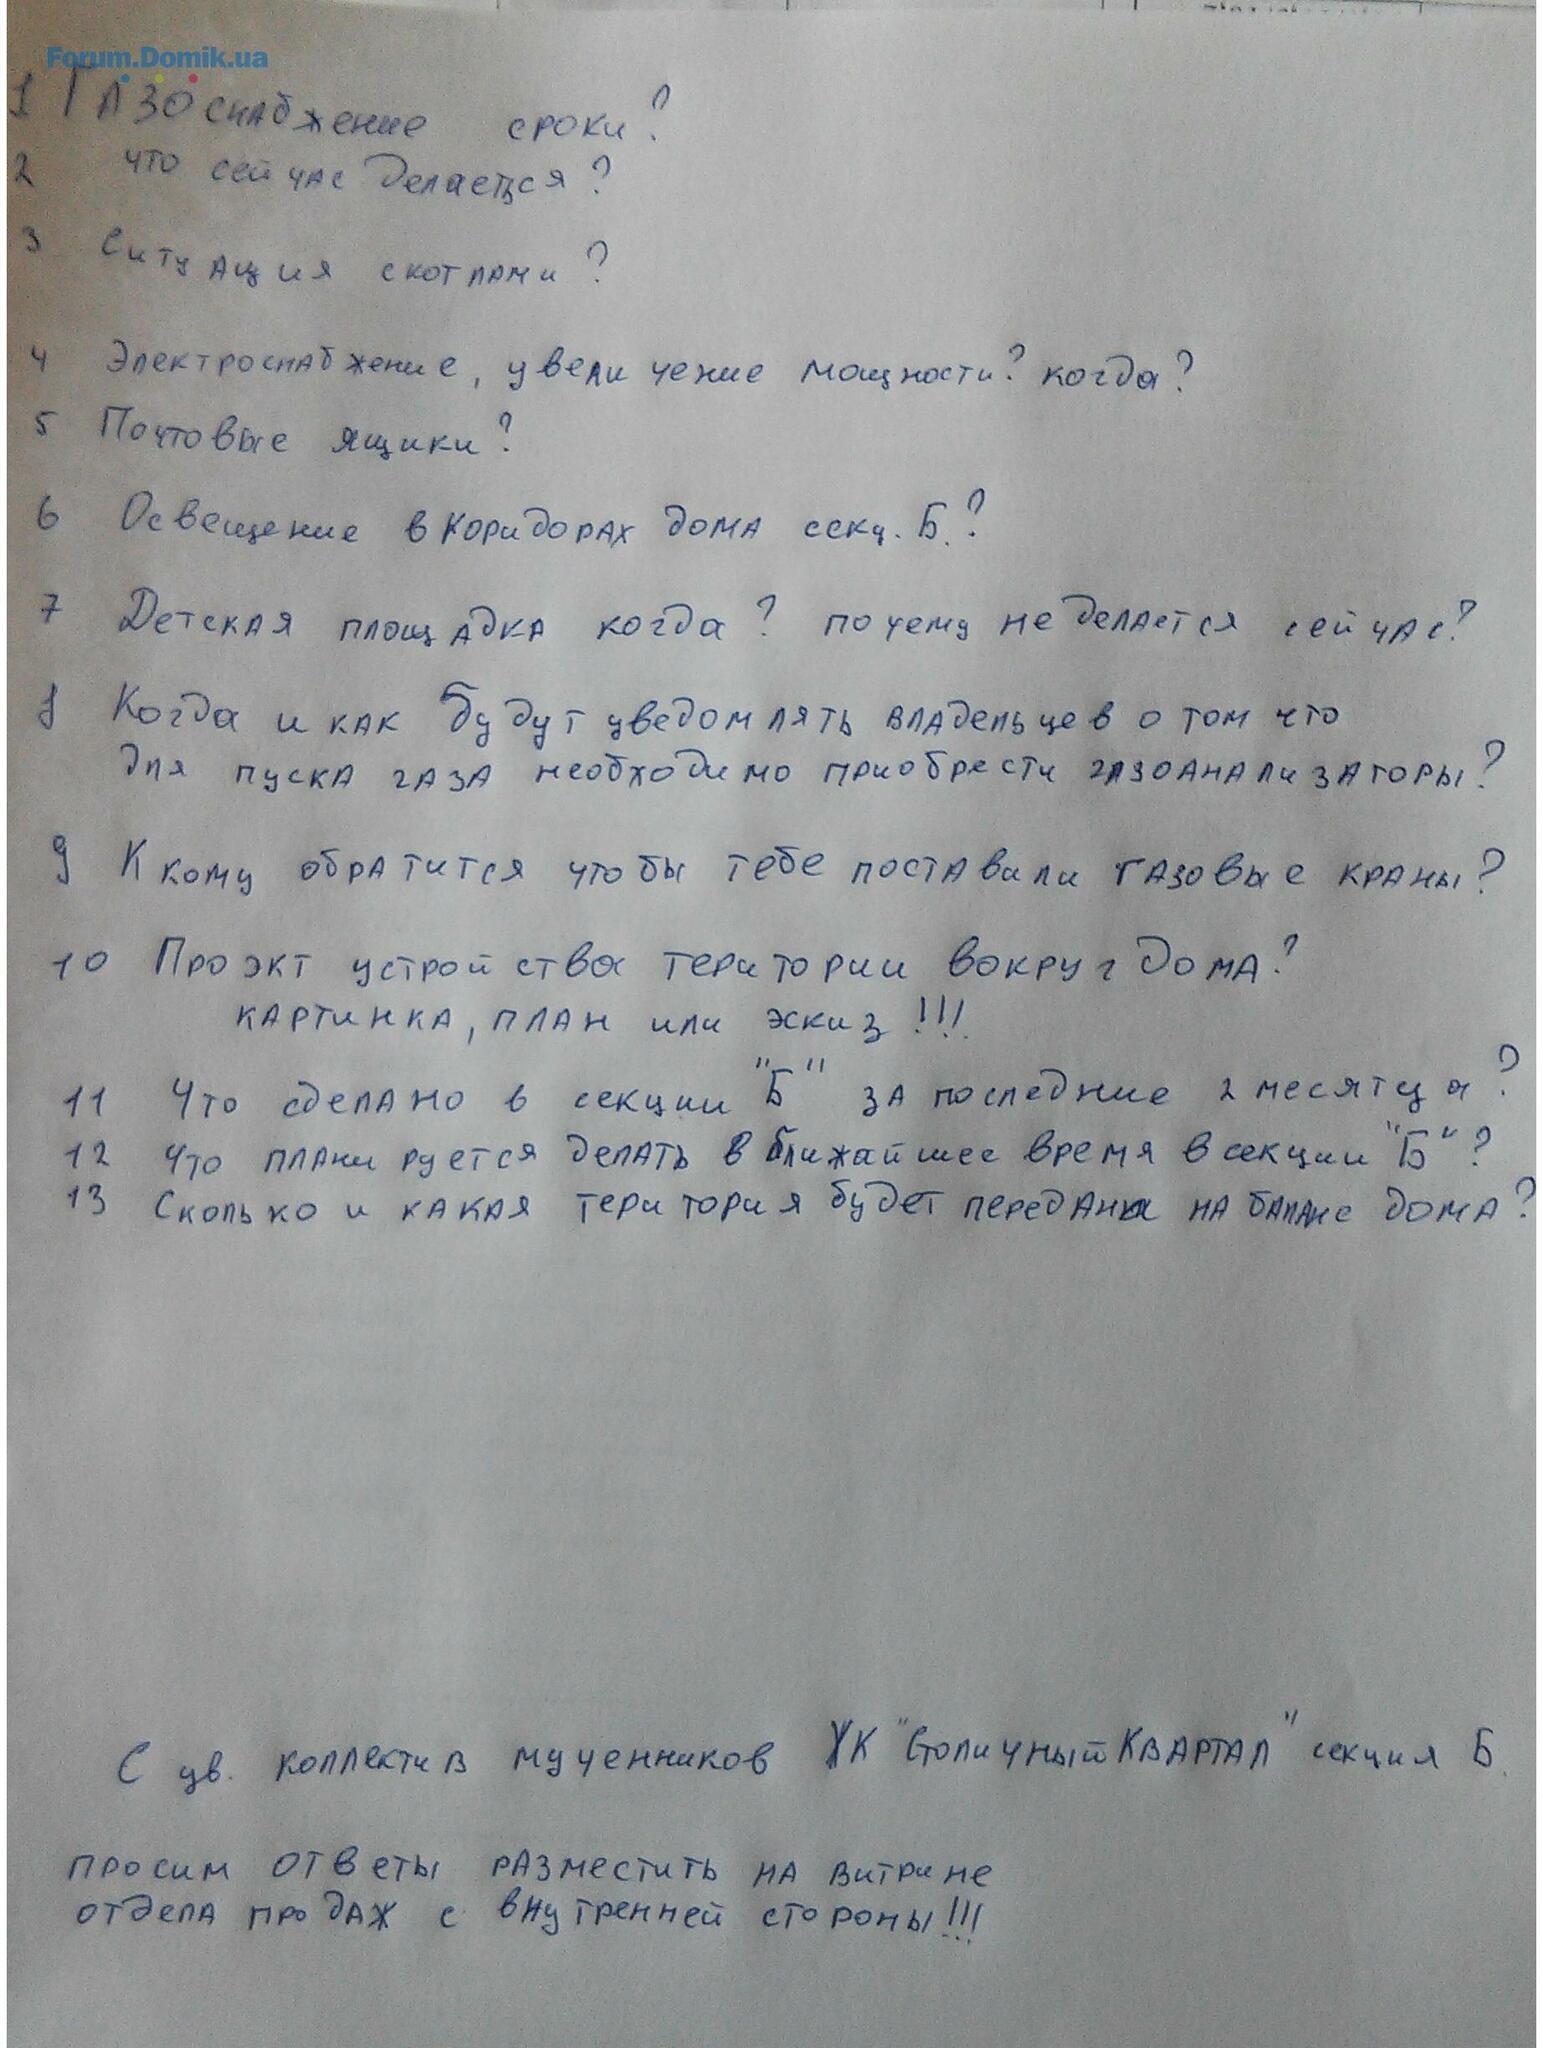 Forum.Domik.ua
1 Газоснабжение сроки?
2 что сейчас делается?
3 Ситуация с котлами?
4 Электроснабжение, увеличение мощности? когда?
5 Почтовые ящики?
6 Освещение в коридорах дома секц. Б.?
7 Детская площадка когда? почему не делается сейчас?
8 Когда и как будут уведомлять владельцев о том что
для пуска газа необходимо приобрести газоанализаторы?
9 К кому обратится чтобы тебе поставили газовые краны?
10 Проэкт устройства територии вокруг дома?
картинка, план или эскиз!!!
11 Что сделано в секции "Б" за последние 2 месятца?
12 Что планируется делать в ближайшее время в секции "Б"?
13 Сколько и какая територия будет передана на баланс дома?
С ув. коллектив мученников ЖК "Столичный Квартал" секция Б.
просим ответы разместить на витрине
отдела продаж с внутренней стороны!!!